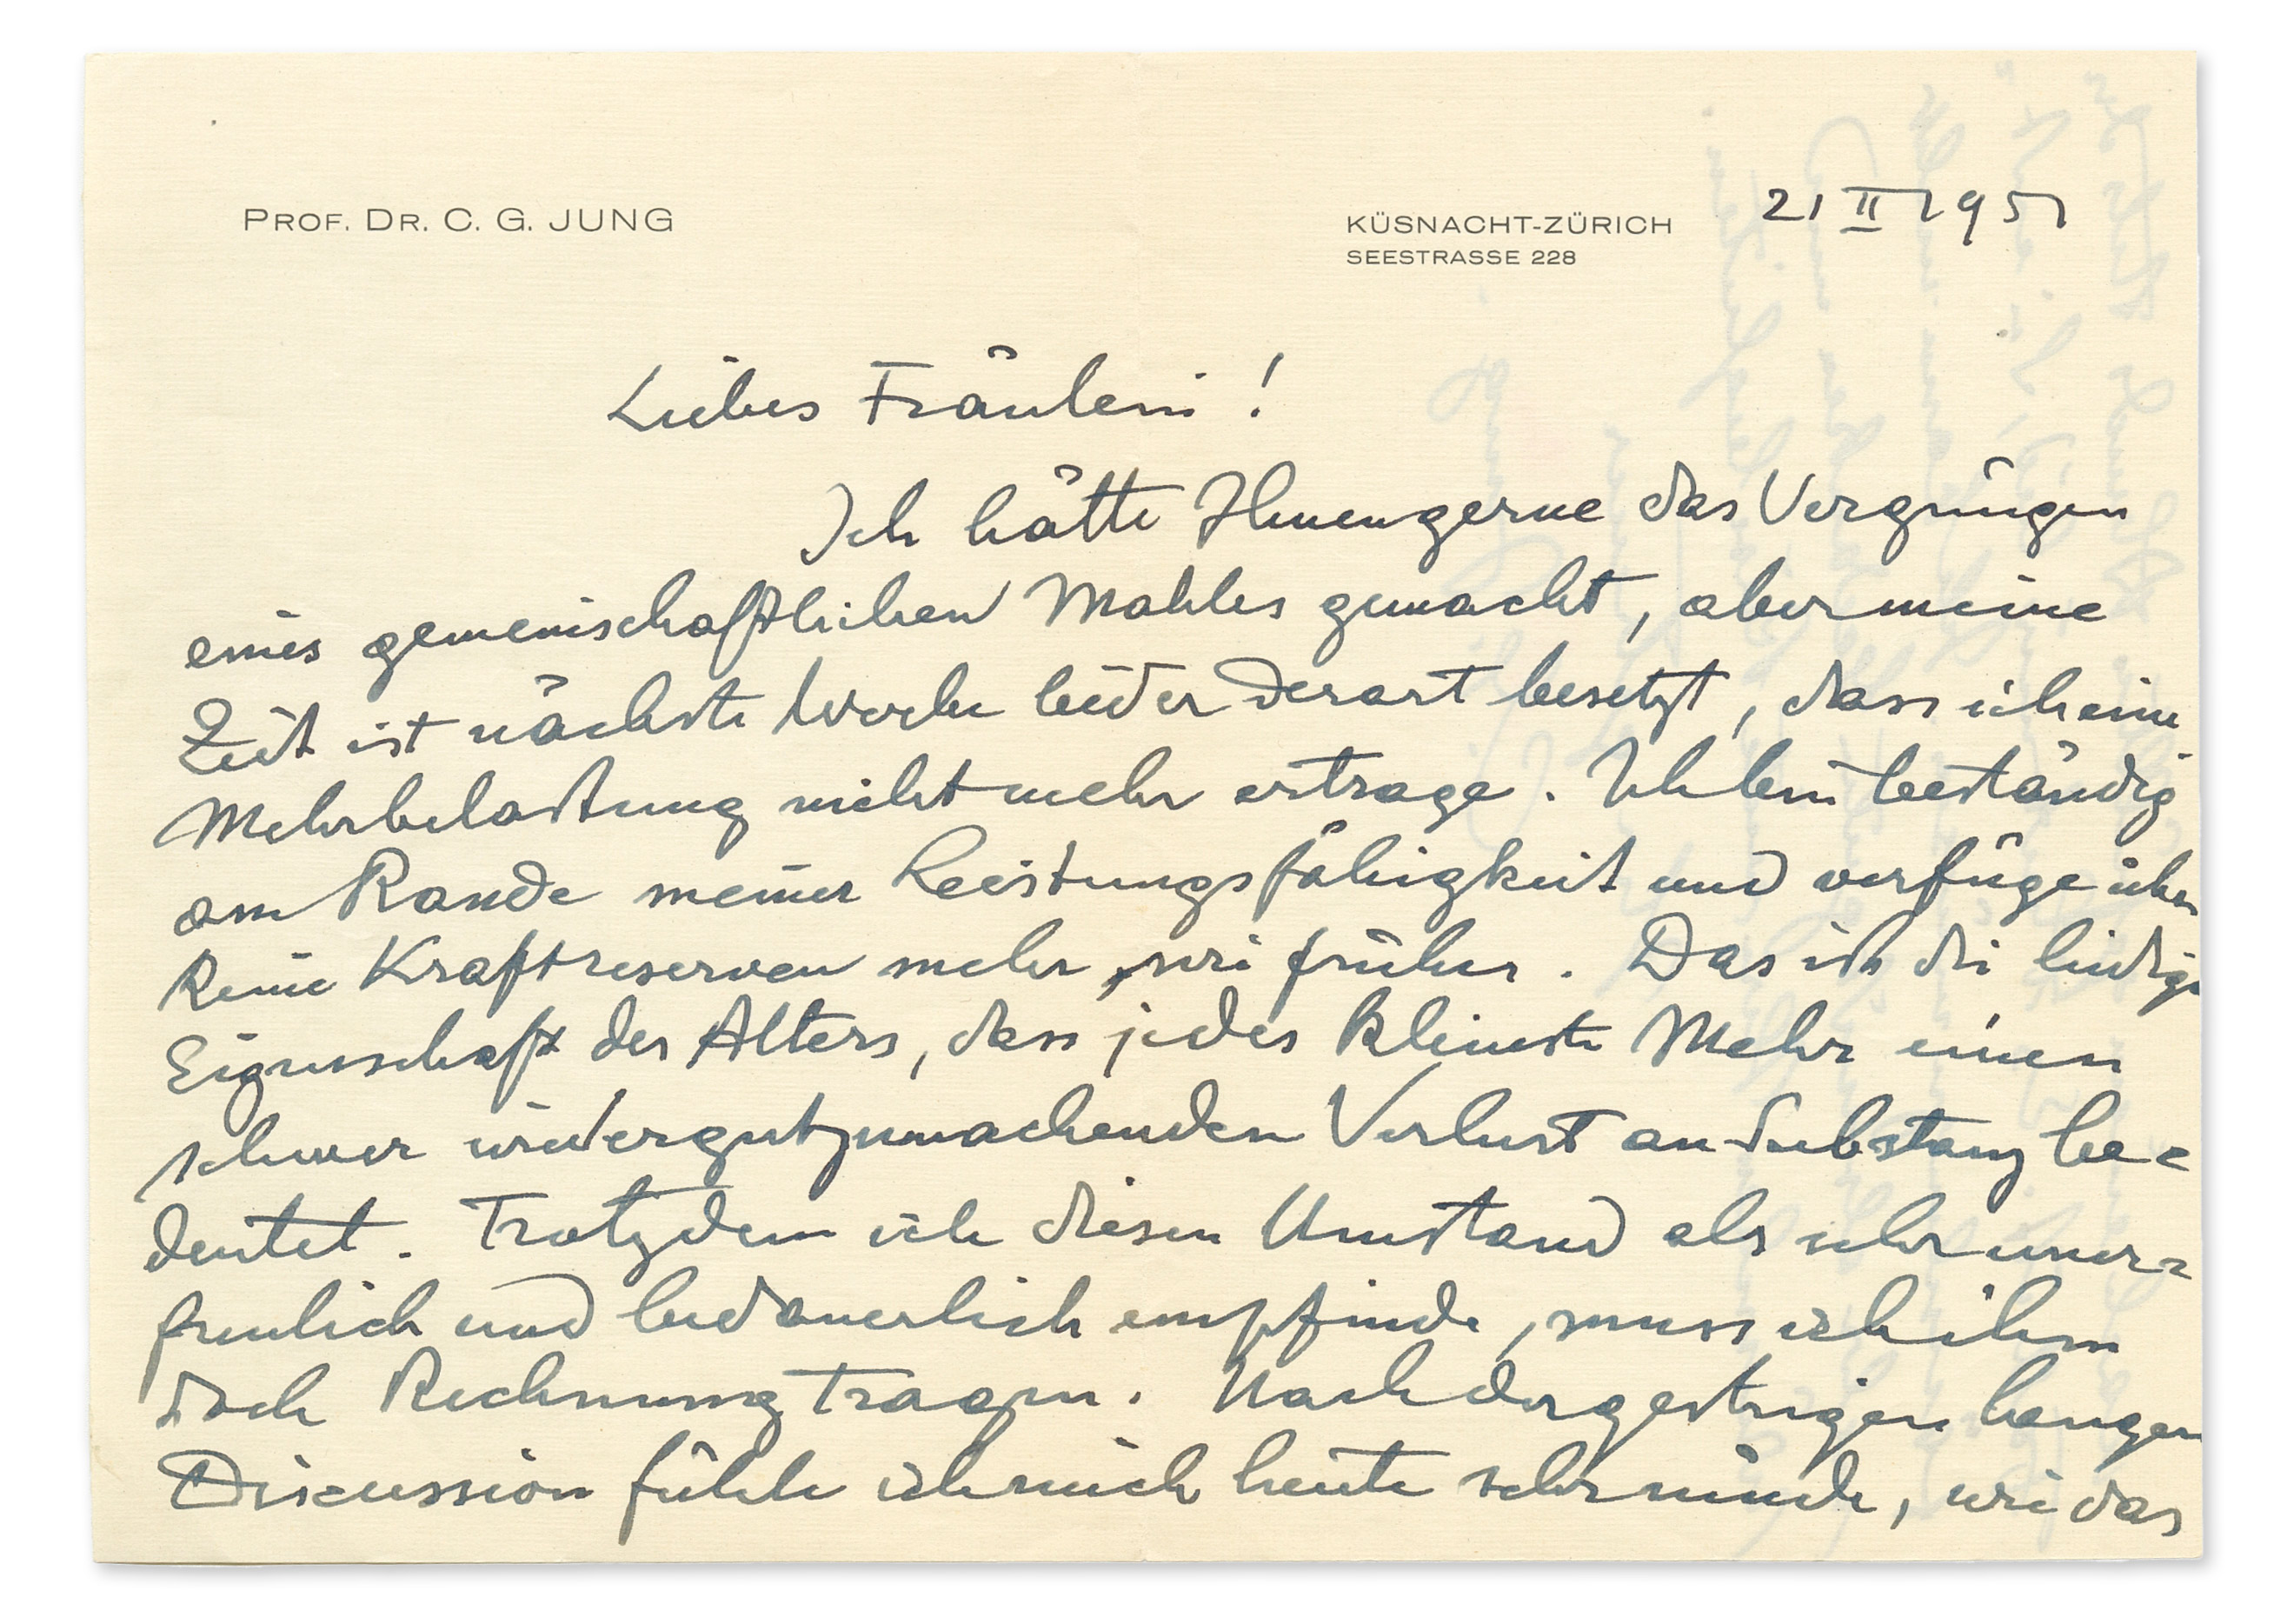 PROF. DR. C. G. JUNG
KÜSNACHT-ZÜRICH
SEESTRASSE 228
21 II 1951
Liebes Fräulein!
Ich hätte Ihnen gerne das Vergnügen
eines gemeinschaftlichen Mahles gemacht, aber meine
Zeit ist nächste Woche leider derart besetzt, dass ich eine
Mehrbelastung nicht mehr ertrage. Ich bin beständig
am Rande meiner Leistungsfähigkeit und verfüge über
keine Kraftreserven mehr, wie früher. Das ist die leidige
Eigenschaft des Alters, dass jedes kleinste Mehr einen
schwer wiedergutzumachenden Verlust an Substanz be=
deutet. Trotzdem ich diesen Umstand als sehr uner=
freulich und bedauerlich empfinde, muss ich ihm
doch Rechnung tragen. Nach der gestrigen langen
Discussion fühle ich mich heute sehr müde, wie das